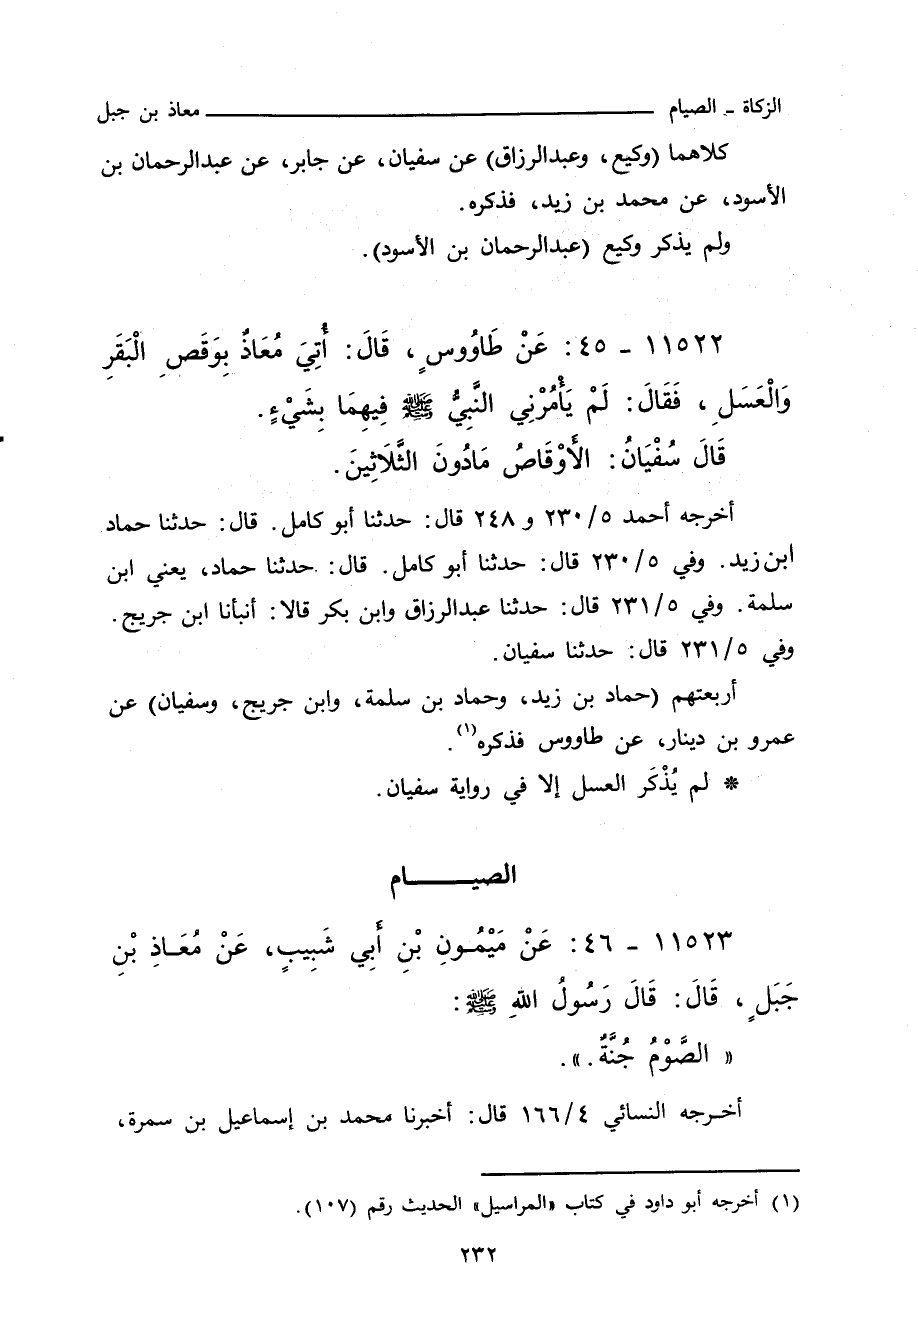 الزكاة - الصيام معاذ بن جبل
كلاهما (وكيع، وعبدالرزاق) عن سفيان، عن جابر، عن عبدالرحمان بن
الأسود، عن محمد بن زيد، فذكره.
ولم يذكر وكيع (عبدالرحمان بن الأسود).
١١٥٢٢ - ٤٥: عَنْ طَاوُوسٍ، قَالَ: أُتِيَ مُعَاذٌ بِوَقَصِ الْبَقَرِ
وَالْعَسَلِ، فَقَالَ: لَمْ يَأْمُرْنِي النَّبِيُّ ﷺ فِيهِمَا بِشَيْءٍ.
قَالَ سُفْيَانُ: الأَوْقَاصُ مَادُونَ الثَّلَاثِينَ.
أخرجه أحمد ٢٣٠/٥ و ٢٤٨ قال: حدثنا أبو كامل. قال: حدثنا حماد
ابن زيد. وفي ٢٣٠/٥ قال: حدثنا أبو كامل. قال: حدثنا حماد، يعني ابن
سلمة. وفي ٢٣١/٥ قال: حدثنا عبدالرزاق وابن بكر قالا: أنبأنا ابن جريج.
وفي ٢٣١/٥ قال: حدثنا سفيان.
أربعتهم (حماد بن زيد، وحماد بن سلمة، وابن جريج، وسفيان) عن
عمرو بن دينار، عن طاووس فذكره(١).
* لم يُذْكَر العسل إلا في رواية سفيان.
الصيـــــام
١١٥٢٣ - ٤٦: عَنْ مَيْمُـونِ بْنِ أَبِي شَبِيبٍ، عَنْ مُعَـاذِ بْنِ
جَبَلٍ، قَالَ: قَالَ رَسُولُ اللهِ ﷺ:
« الصَّوْمُ جُنَّةٌ. ».
أخـرجه النسائي ١٦٦/٤ قال: أخبرنا محمد بن إسماعيل بن سمرة،
(١) أخرجه أبو داود في كتاب «المراسيل» الحديث رقم (١٠٧).
٢٣٢